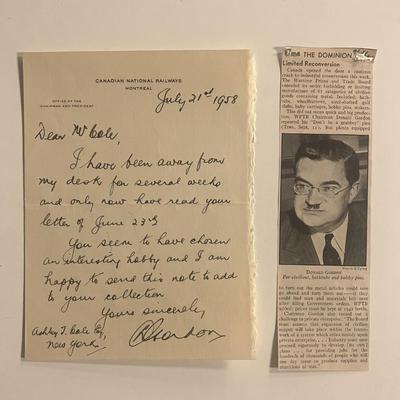 CANADIAN NATIONAL RAILWAYS
MONTREAL
OFFICE OF THE
CHAIRMAN AND PRESIDENT
July 21st 1958
Dear Mr Cole,
I have been away from
my desk for several weeks
and only now have read your
letter of June 23rd.
You seem to have chosen
an interesting hobby and I am
happy to send this note to add
to your collection
Yours sincerely,
DGordon
Ashley T. Cole Esq,
New York.
THE DOMINION
Limited Reconversion
Canada opened the door a cautious
crack to industrial reconversion this week.
The Wartime Prices and Trade Board
rescinded its order forbidding or limiting
manufacture of 67 categories of civilian
goods containing metal. Included: bath-
tubs, wheelbarrows, steel-shafted golf
clubs, baby carriages, bobby pins, stokers.
This did not mean quick and big produc-
tion. WPTB Chairman Donald Gordon
repeated his "Don't be a grabber" plea
(TIME, Sept. 11). But plants equipped
Harris & Ewing
DONALD GORDON
For civilians, bathtubs and bobby pins.
to turn out the metal articles could now
go ahead and turn them out—if they
could find men and materials left over
after filling Government orders. WPTB
added: prices must be kept at 1941 levels.
Chairman Gordon also tossed out a
challenge to private enterprise. "The Board
must assume that expansion of civilian
output will take place within the frame-
work of a system which relies mainly upon
private enterprise. . . . Industry must now
proceed vigorously to develop [its own]
plans . . . for providing jobs for the
hundreds of thousands of people who will
one day cease to produce supplies and
munitions of war."